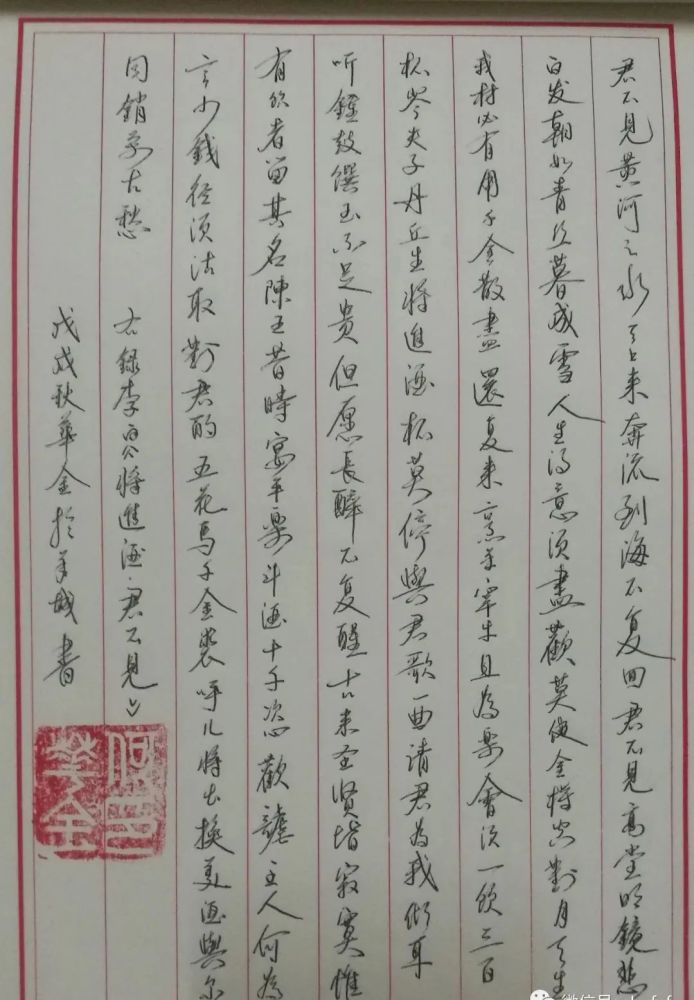 君不見黃河之水天上来奔流到海不复回君不見高堂明鏡悲
白发朝如青丝暮成雪人生得意須盡歡莫使金樽空對月天生
我材必有用千金散盡還复来烹羊宰牛且為樂會須一飲三百
杯岑夫子丹丘生將進酒杯莫停與君歌一曲請君為我傾耳
听鐘鼓饌玉不足貴但愿長醉不复醒古来圣賢皆寂寞惟
有飲者留其名陳王昔時宴平樂斗酒十千恣歡謔主人何為
言少錢徑須沽取對君酌五花馬千金裘呼儿將出換美酒與尔
同銷万古愁 右錄李白將進酒君不見
戊戌秋華金於羊城書
華金
微信号